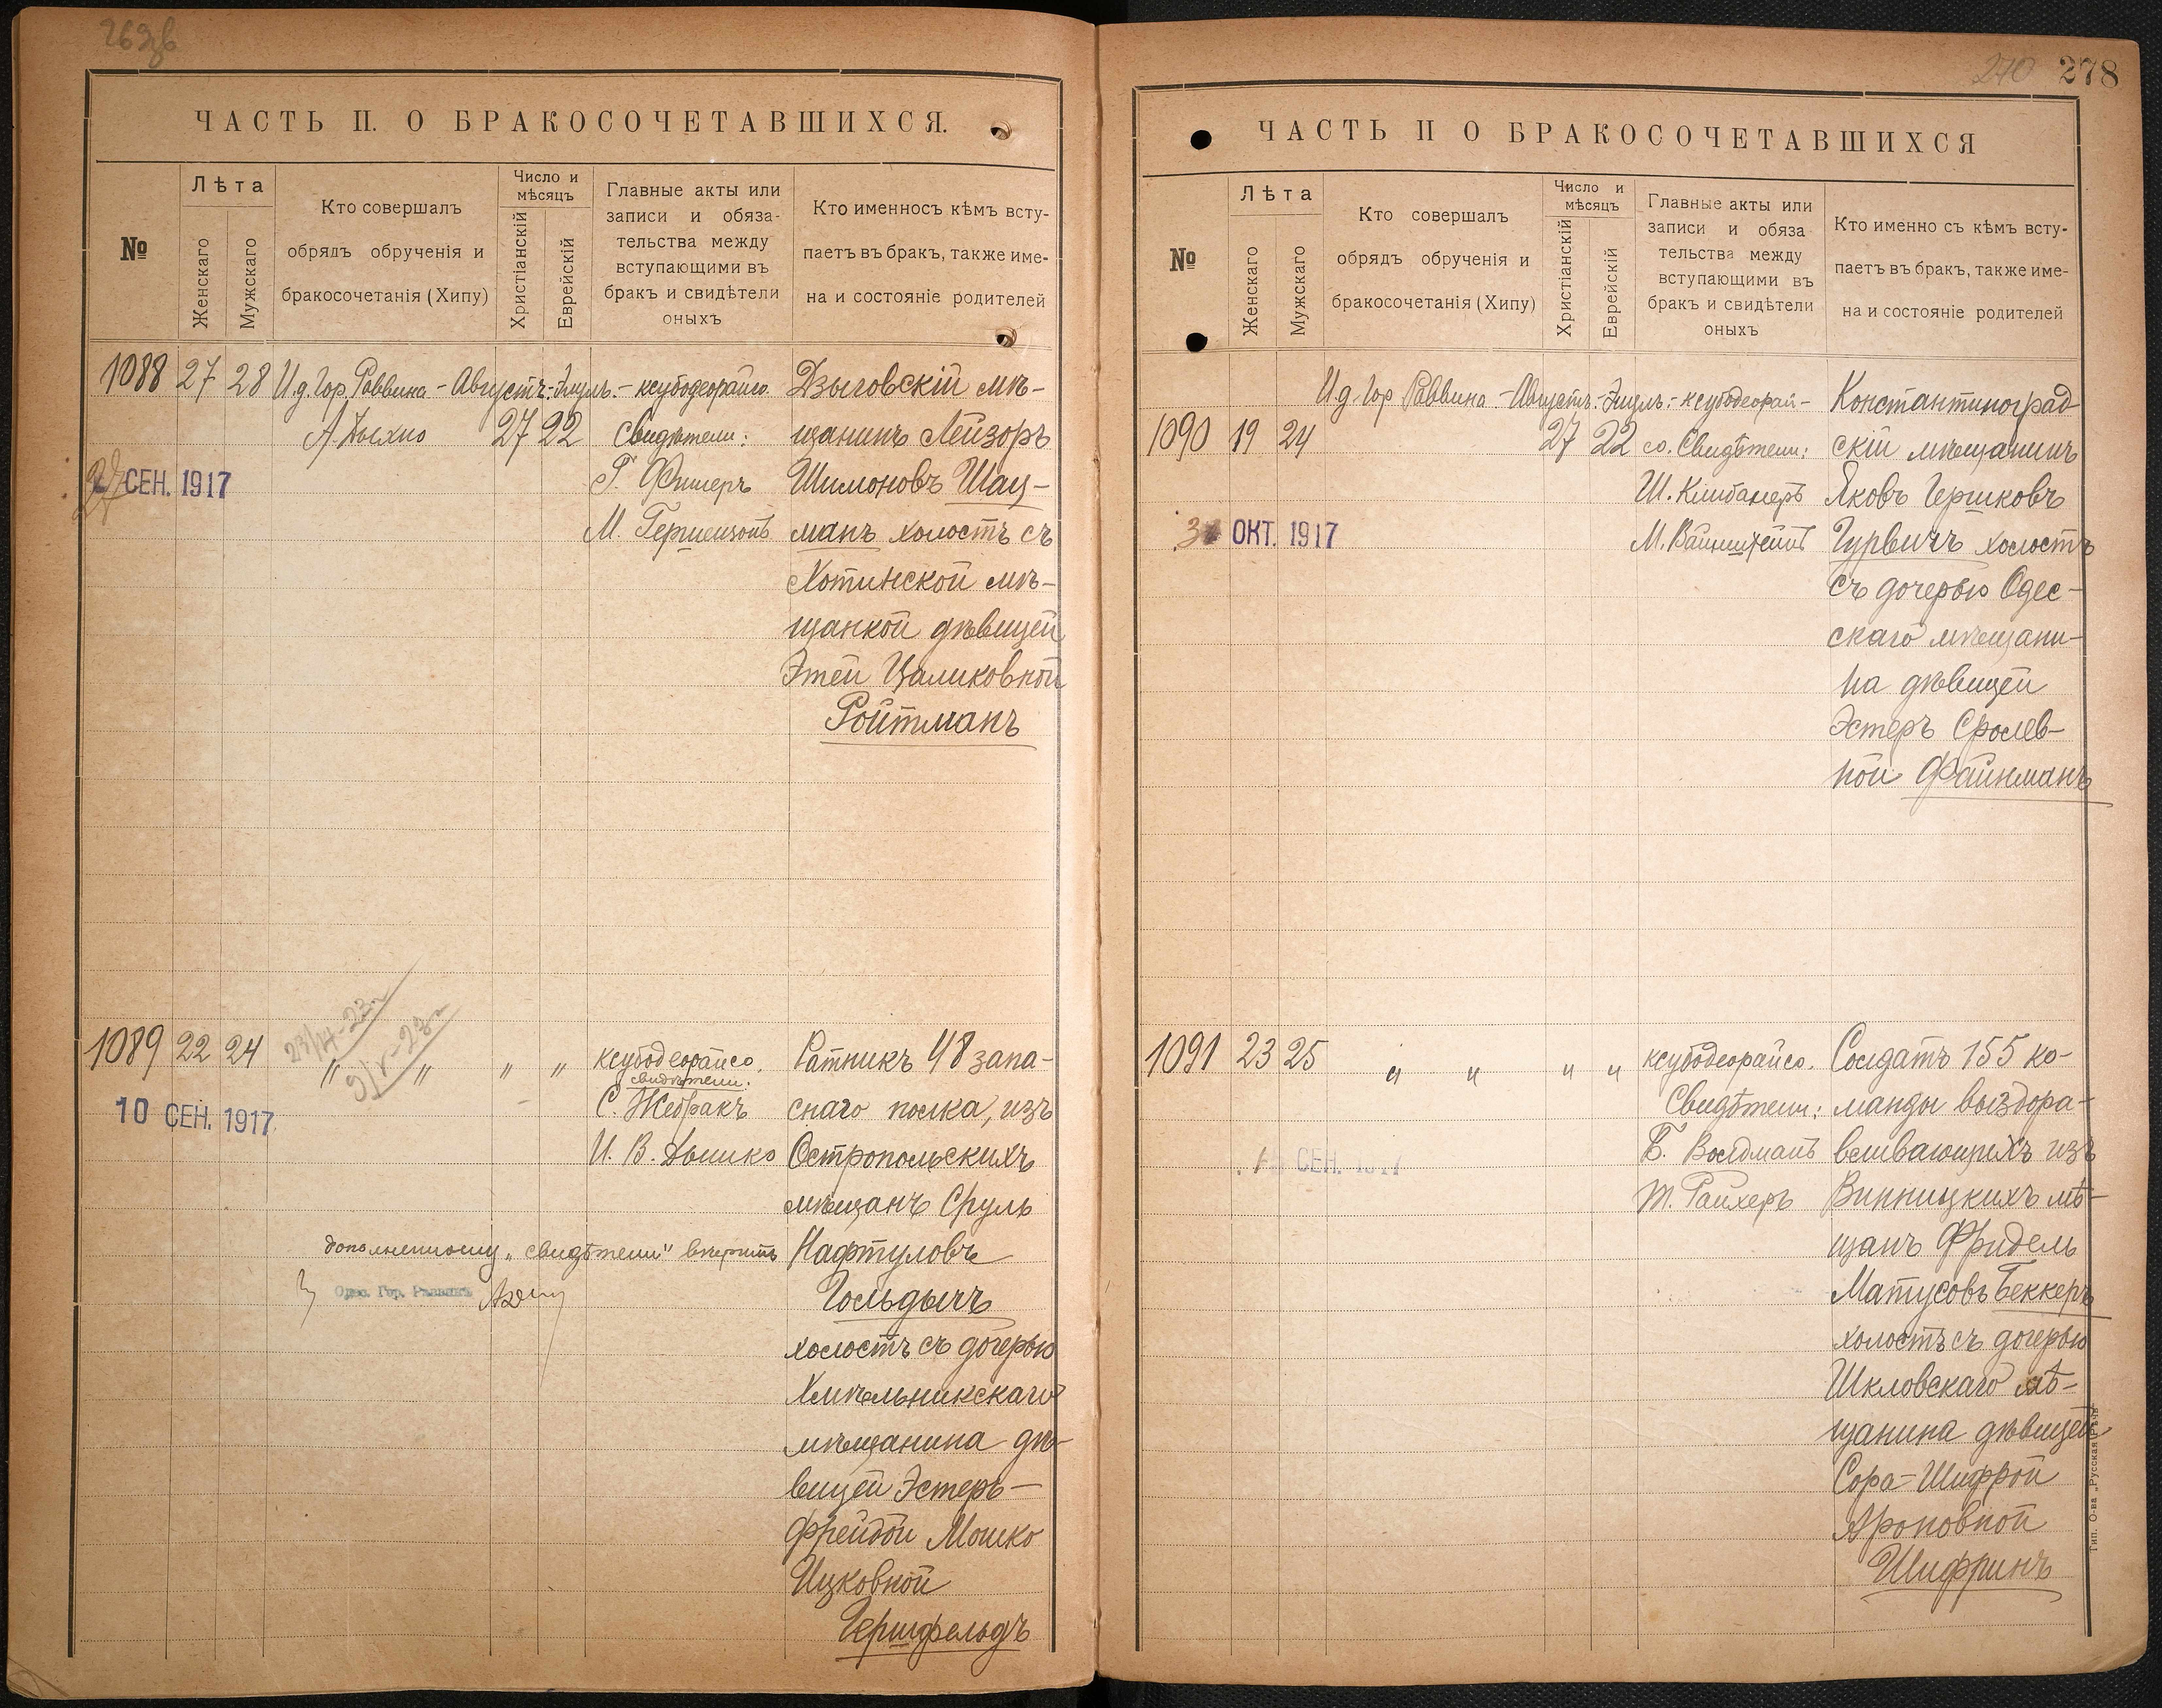 278
270
ЧАСТЬ II. О БРАКОСОЧЕТАВШИХСЯ.
№
Лѣта
Женскаго
Мужскаго
Кто совершалъ
обрядъ обрученія и
бракосочетанія (Хипу)
Число и
мѣсяцъ
Христіанскій
Еврейскій
Главные акты или
записи и обяза-
тельства между
вступающими въ
бракъ и свидѣтели
оныхъ
Кто именносъ кѣмъ всту-
паетъ въ бракъ, также име-
на и состояніе родителей
1088 27 28 И.д. Гор. Раввина - Августъ. - Элулъ. - ксубодеорайсо
27 22
Свидѣтели:
Г. Фишеръ
М. Гершензонъ
СЕН. 1917
Дзыговскій мѣ-
щанинъ Лейзоръ
Шимоновъ Шац-
манъ холостъ съ
Хотинской мѣ-
щанкой дѣвицей
Этей Цаликовной
Ройтманъ
1089 22 24 " " " " ксубодеорайсо.
свидѣтели:
С. Жебракъ
И. В. Дышко
10 СЕН. 1917
дополненному „свидѣтели" вѣрить
Одес. Гор. Раввинъ
Ратникъ 48 запа-
снаго полка, изъ
Остропольскихъ
мѣщанъ Сруль
Нафтуловъ
Гольдычъ
холостъ съ дочерью
Хмѣльникскаго
мѣщанина дѣ-
вицей Эстеръ-
Фрейдой Мошко
Ицковной
Гершфельдъ
ЧАСТЬ II О БРАКОСОЧЕТАВШИХСЯ
№
Лѣта
Женскаго
Мужскаго
Кто совершалъ
обрядъ обрученія и
бракосочетанія (Хипу)
Число и
мѣсяцъ
Христіанскій
Еврейскій
Главные акты или
записи и обяза
тельства между
вступающими въ
бракъ и свидѣтели
оныхъ
Кто именно съ кѣмъ всту-
паетъ въ бракъ, также име-
на и состояніе родителей
И.д. Гор Раввина. - Августъ. - Элулъ. - ксубодеорай-
1090 19 24 27 22 со. Свидѣтели:
Ш. Клибанеръ
М. Вайнштейнъ
ОКТ. 1917
Константиноград
скій мѣщанинъ
Яковъ Гершковъ
Гурвичъ холостъ
съ дочерью Одес-
скаго мѣщани-
на дѣвицей
Эстеръ Сролев-
ной Файнманъ
1091 23 25 " " " " ксубодеорайсо.
Свидѣтели:
Б. Волдманъ
Т. Райхеръ
СЕН. 1917
Солдатъ 155 ко-
манды выздора-
вливающихъ изъ
Винницкихъ мѣ-
щанъ Фридель
Матусовъ Беккеръ
холостъ съ дочерью
Шкловскаго мѣ-
щанина дѣвицей
Сора-Шифрой
Ароновной
Шифринъ
Тип. О-ва „Русская Рѣчь"